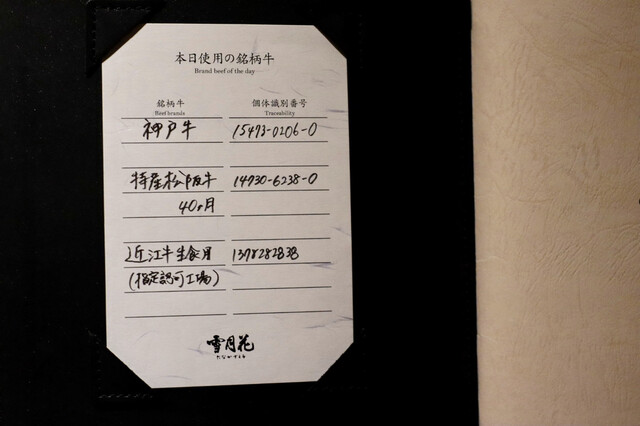 本日使用の銘柄牛
Brand beef of the day
銘柄牛 個体識別番号
Beef brands Traceability
神戸牛 15473-0206-0
特産松阪牛 14730-6238-0
40ヶ月
近江牛生食用 1378282838
(指定認可工場)
雪月花
たなかさとる